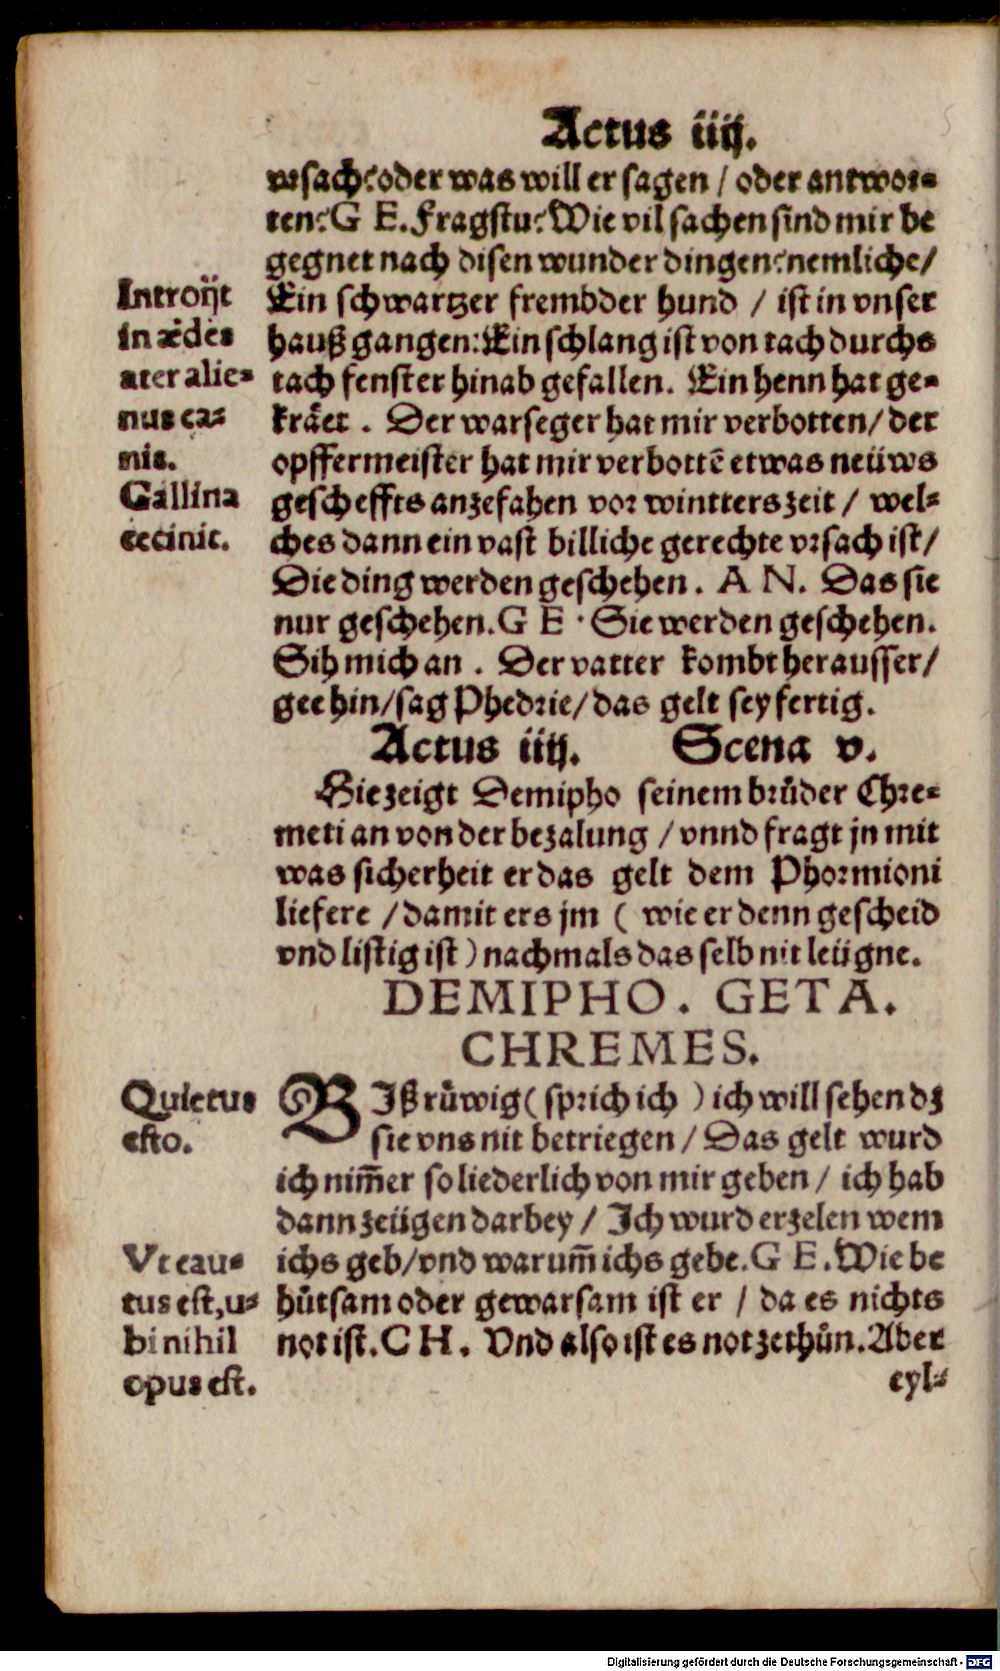 Actus iiij.
vrsach? oder was will er sagen / oder antwor⸗
ten? G E. Fragstu? Wie vil sachen sind mir be
gegnet nach disen wunder dingen? nemliche /
Introijt
in ædes
ater alie⸗
nus ca⸗
nis.
Gallina
cecinit.
Ein schwartzer frembder hund / ist in vnser
hauß gangen: Ein schlang ist von tach durchs
tach fenster hinab gefallen. Ein henn hat ge⸗
kräet . Der warseger hat mir verbotten / der
opffermeister hat mir verbottē etwas neüws
gescheffts anzefahen vor wintters zeit / wel⸗
ches dann ein vast billiche gerechte vrsach ist /
Die ding werden geschehen. A N. Das sie
nur geschehen. G E . Sie werden geschehen.
Sih mich an . Der vatter kombt herausser /
gee hin / sag Phedrie / das gelt sey fertig.
Actus iiij. Scena v.
Hie zeigt Demipho seinem brůder Chre⸗
meti an von der bezalung / vnnd fragt jn mit
was sicherheit er das gelt dem Phormioni
liefere / damit ers jm ( wie er denn gescheid
vnd listig ist ) nachmals das selb nit leügne.
DEMIPHO. GETA.
CHREMES.
Quietus
esto.
BIß růwig ( sprich ich ) ich will sehen dz
sie vns nit betriegen / Das gelt wurd
ich nim̄er so liederlich von mir geben / ich hab
dann zeügen darbey / Ich wurd erzelen wem
Vt cau⸗
tus est, u⸗
bi nihil
opus est.
ichs geb / vnd warum̄ ichs gebe. G E. Wie be
hůtsam oder gewarsam ist er / da es nichts
not ist. C H. Vnd also ist es not zethůn. Aber
eyl⸗
Digitalisierung gefördert durch die Deutsche Forschungsgemeinschaft - DFG